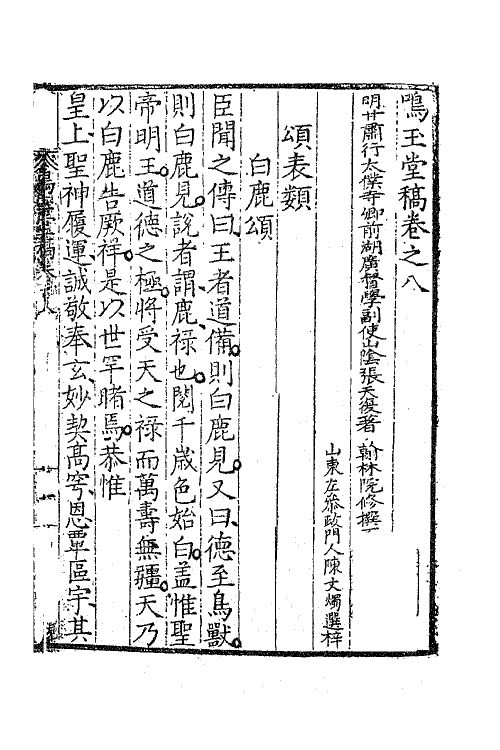 鳴玉堂稿卷之八
明甘肅行太僕寺卿前湖廣督學副使山陰張天復著 翰林院修撰
山東左參政門人陳文燭選梓
頌表類
白鹿頌
臣聞之傳曰王者道備則白鹿見又曰德至鳥獸
則白鹿見說者謂鹿祿也閱千歲色始白蓋惟聖
帝明王道德之極將受天之祿而萬壽無疆天乃
以白鹿告厥祥是以世罕睹焉恭惟
皇上聖神履運誠敬奉玄妙契高穹恩覃區宇其